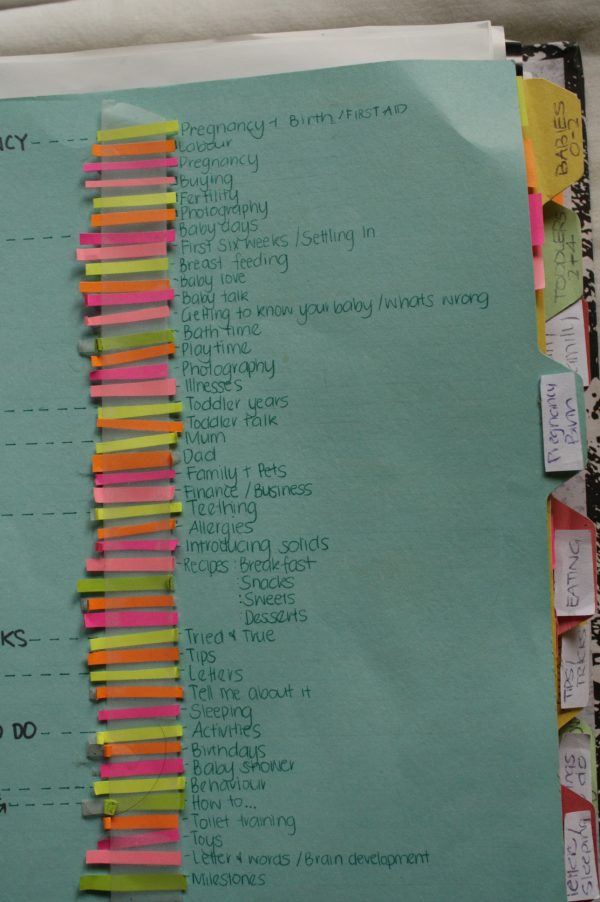 NCY
Pregnancy + Birth / FIRST AID
Labour
Pregnancy
Buying
Fertility
Photography
Baby days
First six weeks / Settling In
Breast feeding
Baby love
Baby talk
Getting to know your baby / whats wrong
Bath time
Playtime
Photography
Illnesses
Toddler years
Toddler talk
Mum
Dad
Family + Pets
Finance / Business
Teething
Allergies
Introducing solids
Recipes: Breakfast
Snacks
: Sweets
Desserts
KS
Tried & True
Tips
Letters
Tell me about it
Sleeping
DO
Activities
Birthdays
Baby shower
Behaviour
G
How to...
Toilet training
Toys
Letter & words / Brain development
Milestones
BABIES
0-2
TODDLERS
2+4
Pregnancy
EATING
TIPS/
TRICKS
do
Sleeping